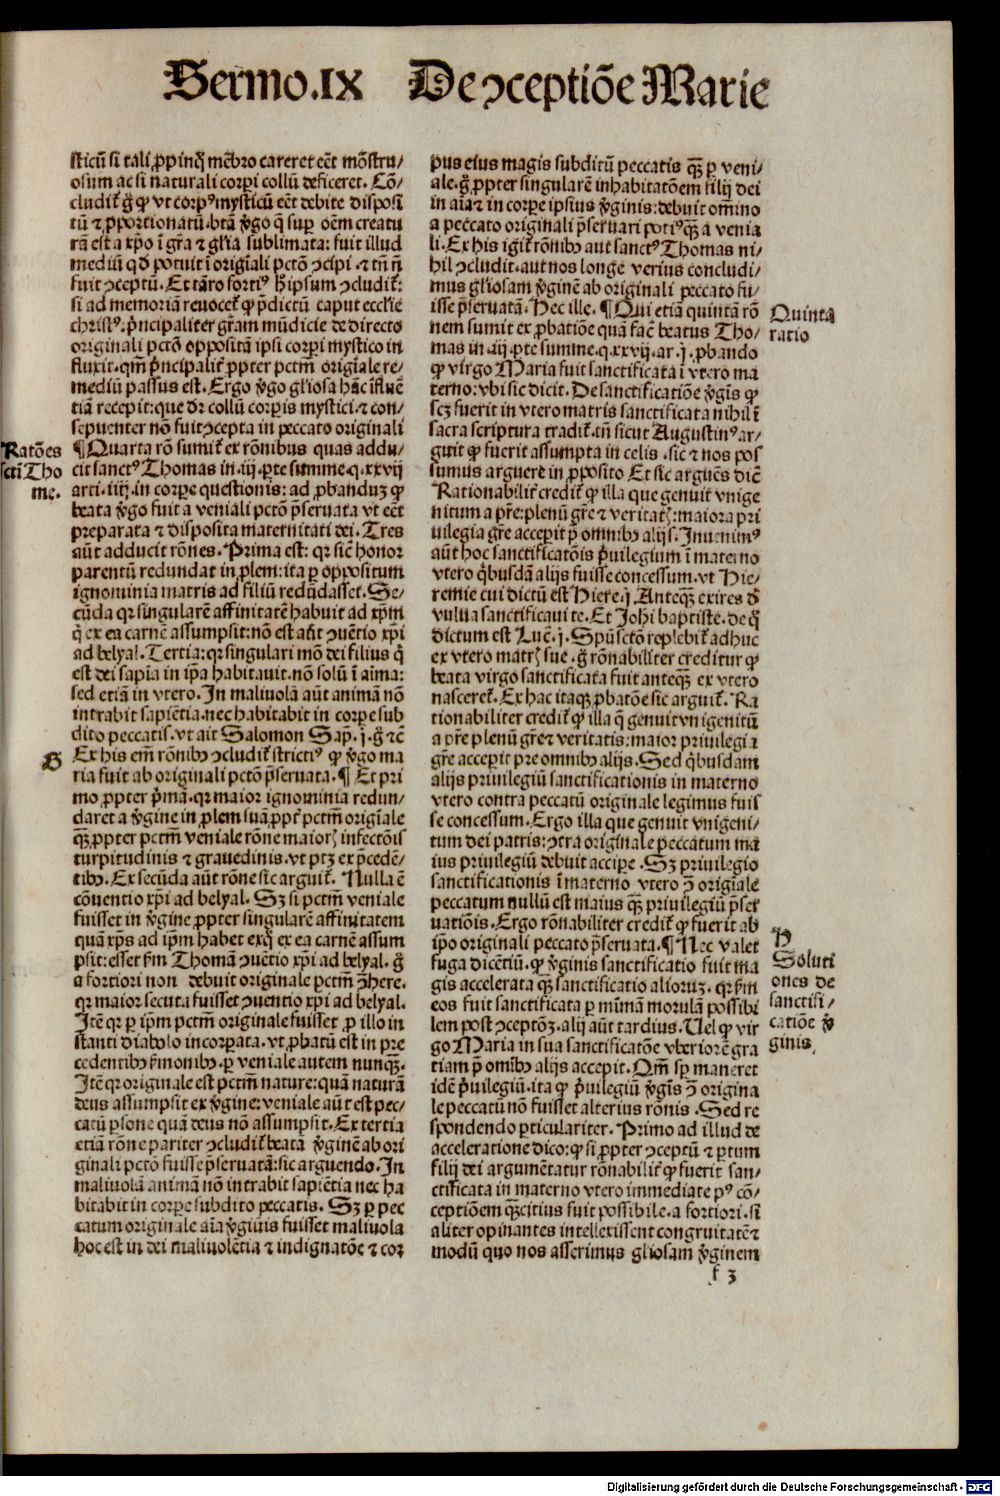 Sermo.IX De ↄceptiōe Marie
sticū si tali ꝓpinq̄ mēbro careret eēt mōstru/
osum ac si naturali corpi collū deficeret. Cō/
cludit̄ g̊ ꝙ vt corpꝰ mysticū eēt debite disposi
tū ⁊ ꝓportionatū. btā v̄go q̄ sup oēm creatu
rā est a xp̄o ī gr̄a ⁊ gl̄ia sublimata: fuit illud
mediū qd̄ potuit ī origīali pctō ↄcipi. ⁊ tn̄ nō
fuit ↄceptū. Et tāto fortiꝰ h̄ ipsum ↄcludit̄:
si ad memoriā reuocet̄ ꝙ p̄dictū caput eccl̄ie
christꝰ. p̄ncipaliter gr̄am mūdicie de directo
originali pctō oppositā ipsi corpi mystico in
fluxit. qm̄ p̄ncipalit̄ ꝓpter pctm̄ origīale re/
mediū passus est. Ergo v̄go gl̄iosa hāc īfluē
tiā recepit: que dr̄ collū corpis mystici. ⁊ con/
sequenter nō fuit ↄcepta in peccato originali
¶Quarta rō sumit̄ ex rōnibus quas addu/
cit sanctꝰ Thomas in .iij. pte summe. q. xxvij
arti. iiij. in corpe questionis: ad ꝓbanduz ꝙ
beata v̄go fuit a veniali pctō p̄seruata vt eēt
preparata ⁊ disposita maternitati dei. Tres
aūt adducit rōnes. Prima est: qr sic̄ honor
parentū redundat in ꝓlem: ita ꝑ oppositum
ignominia matris ad filiū redūdasset. Se/
cūda qr singularē affinitatē habuit ad xp̄m
q̄ ex ea carnē assumpsit: nō est aūt ↄuētio xp̄i
ad belyal. Tertia: qr singulari mō dei filius q̄
est dei sapīa in ip̄a habitauit. nō solū ī aīma:
sed etiā in vtero. In maliuolā aūt animā nō
intrabit sapiētia. nec habitabit in corpe sub
dito peccatis. vt ait Salomon Sap. j. g̊ ⁊c̄
Ex his em̄ rōnibꝰ ↄcludit̄ strictiꝰ ꝙ v̄go ma
ria fuit ab originali pctō p̄seruata. ¶ Et pri
mo ꝓpter p̄mā. qr maior ignominia redun/
daret a v̄gine in ꝓlem suā ꝓpt̄ pctm̄ origīale
qꝫ ꝓpter pctm̄ veniale rōne maioris infectōis
turpitudinis ⁊ grauedinis. vt ptꝫ ex p̄cedē/
tibꝰ. Ex secūda aūt rōne sic arguit̄. Nulla ē
cōuentio xp̄i ad belyal. Sꝫ si pctm̄ veniale
fuisset in v̄gine ꝓpter singularē affinitatem
quā xp̄s ad ip̄m habet exq̄ ex ea carnē assum
psit: esset fm̄ Thomā ↄuētio xp̄i ad belyal. g̊
a fortiori non debuit originale pctm̄ ↄ̄here.
qr maior secuta fuisset ↄuentio xp̄i ad belyal.
Itē qr ꝑ ip̄m pctm̄ originale fuisset ꝓ illo in
stanti diabolo incorpata. vt ꝓbatū est in pre
cedentibꝰ s̄monibꝰ. ꝑ veniale autem nunqꝫ.
Itē qr originale est pctm̄ nature: quā naturā
deus assumpsit ex v̄gine: veniale aūt est pec/
catū psone quā deus nō assumpsit. Ex tertia
etiā rōne pariter ↄcludit̄ beatā v̄ginē ab ori
ginali pctō fuisse p̄seruatā: sic arguendo. In
maliuolā animā nō intrabit sapiētia nec ha
bitabit in corpe subdito peccatis. Sꝫ ꝑ pec
catum originale aīa v̄ginis fuisset maliuola
hoc est in dei maliuolētia ⁊ indignatōe ⁊ cor
Ratōes
scti Tho
me.
G
pus eius magis subditū peccatis qꝫ ꝑ veni/
ale. g̊ ꝓpter singularē inhabitatōem filij dei
in aīa ⁊ in corpe ipsius v̄ginis: debuit omīno
a peccato originali p̄seruari potiꝰ qꝫ a venia
li. Ex his igit̄ rōnibꝰ aut sanctꝰ Thomas ni/
hil ↄcludit. aut nos longe verius concludi/
mus gl̄iosam v̄ginē ab originali peccato fu/
isse p̄seruatā. Hec ille. ¶Qui etiā quintā rō
nem sumit ex ꝓbatiōe quā fac̄ beatus Tho/
mas in .iij. pte summe. q. xxvij. ar. j. ꝓbando
ꝙ virgo Maria fuit sanctificata ī vtero ma
terno: vbi sic dicit. De sanctificatiōe v̄gis ꝙ
scꝫ fuerit in vtero matris sanctificata nihil ī
sacra scriptura tradit̄. tn̄ sicut Augustinꝰ ar/
guit ꝙ fuerit assumpta in celis. sic ⁊ nos pos
sumus arguere in ꝓposito Et sic arguēs dic̄
Rationabilit̄ credit̄ ꝙ illa que genuit vnige
nitum a pr̄e: plenū gr̄e ⁊ veritatis: maiora pri
uilegia gr̄e acceperit p̄ omnibꝰ alijs. Inuenimꝰ
aūt hoc sanctificatōis p̄uilegium ī materno
vtero q̄busdā alijs fuisse concessum. vt Hie/
remie cui dictū est Hiere. j Anteqꝫ exires d̄
vulua sanctificaui te. Et Johi baptiste. de q̊
dictum est Luc̄. j. Spū sctō replebit̄ adhuc
ex vtero matris sue. g̊ rōnabiliter creditur ꝙ
beata virgo sanctificata fuit anteqꝫ ex vtero
nasceret̄. Ex hac itaqꝫ ꝓbatōe sic arguit̄. Ra
tionabiliter credit̄ ꝙ illa q̄ genuit vnigenitū
a pr̄e plenū gr̄e ⁊ veritatis: maior privilegia
gr̄e acceperit pre omnibꝰ alijs. Sed q̄busdam
alijs priuilegiū sanctificationis in materno
vtero contra peccatū originale legimus fuis
se concessum. Ergo illa que genuit vnigeni/
tum dei patris: ↄtra originale peccatum ma
ius priuilegiū debuit accipe. Sꝫ priuilegio
sanctificationis ī materno vtero ↄ̄ origīale
peccatum nullū est maius qꝫ priuilegiū p̄ser
uatiōis. Ergo rōnabiliter credit̄ ꝙ fuerit ab
ip̄o originali peccato p̄seruata. ¶Nec valet
fuga dicētiū. ꝙ v̄ginis sanctificatio fuit ma
gis accelerata qꝫ sanctificatio alioruz. qr fm̄
eos fuit sanctificata ꝑ mīmā morulā possibi
lem post ↄceptōꝫ. alij aūt tardius. Uel ꝙ vir
go Maria in sua sanctificatōe vberiorē gra
tiam p̄ omībꝰ alijs accepit. Qm̄ sp̄ maneret
idē p̄uilegiū. ita ꝙ p̄uilegiū v̄gis ↄ̄ origina
le peccatū nō fuisset alterius rōnis. Sed re
spondendo pticulariter. Primo ad illud de
acceleratione dico: ꝙ si ꝓpter ↄceptū ⁊ ptum
filij dei argumētatur rōnabilit̄ ꝙ fuerit san/
ctificata in materno vtero immediate pꝰ cō/
ceptiōem qꝫcitius fuit possibile. a fortiori. si
aliter opinantes intellexissent congruitatē ⁊
modū quo nos asserimus gl̄iosam v̄ginem
Quinta
ratio
H
Soluti
ones de
sanctifi/
catiōe v̄
ginis.
f 3
Digitalisierung gefördert durch die Deutsche Forschungsgemeinschaft - DFG